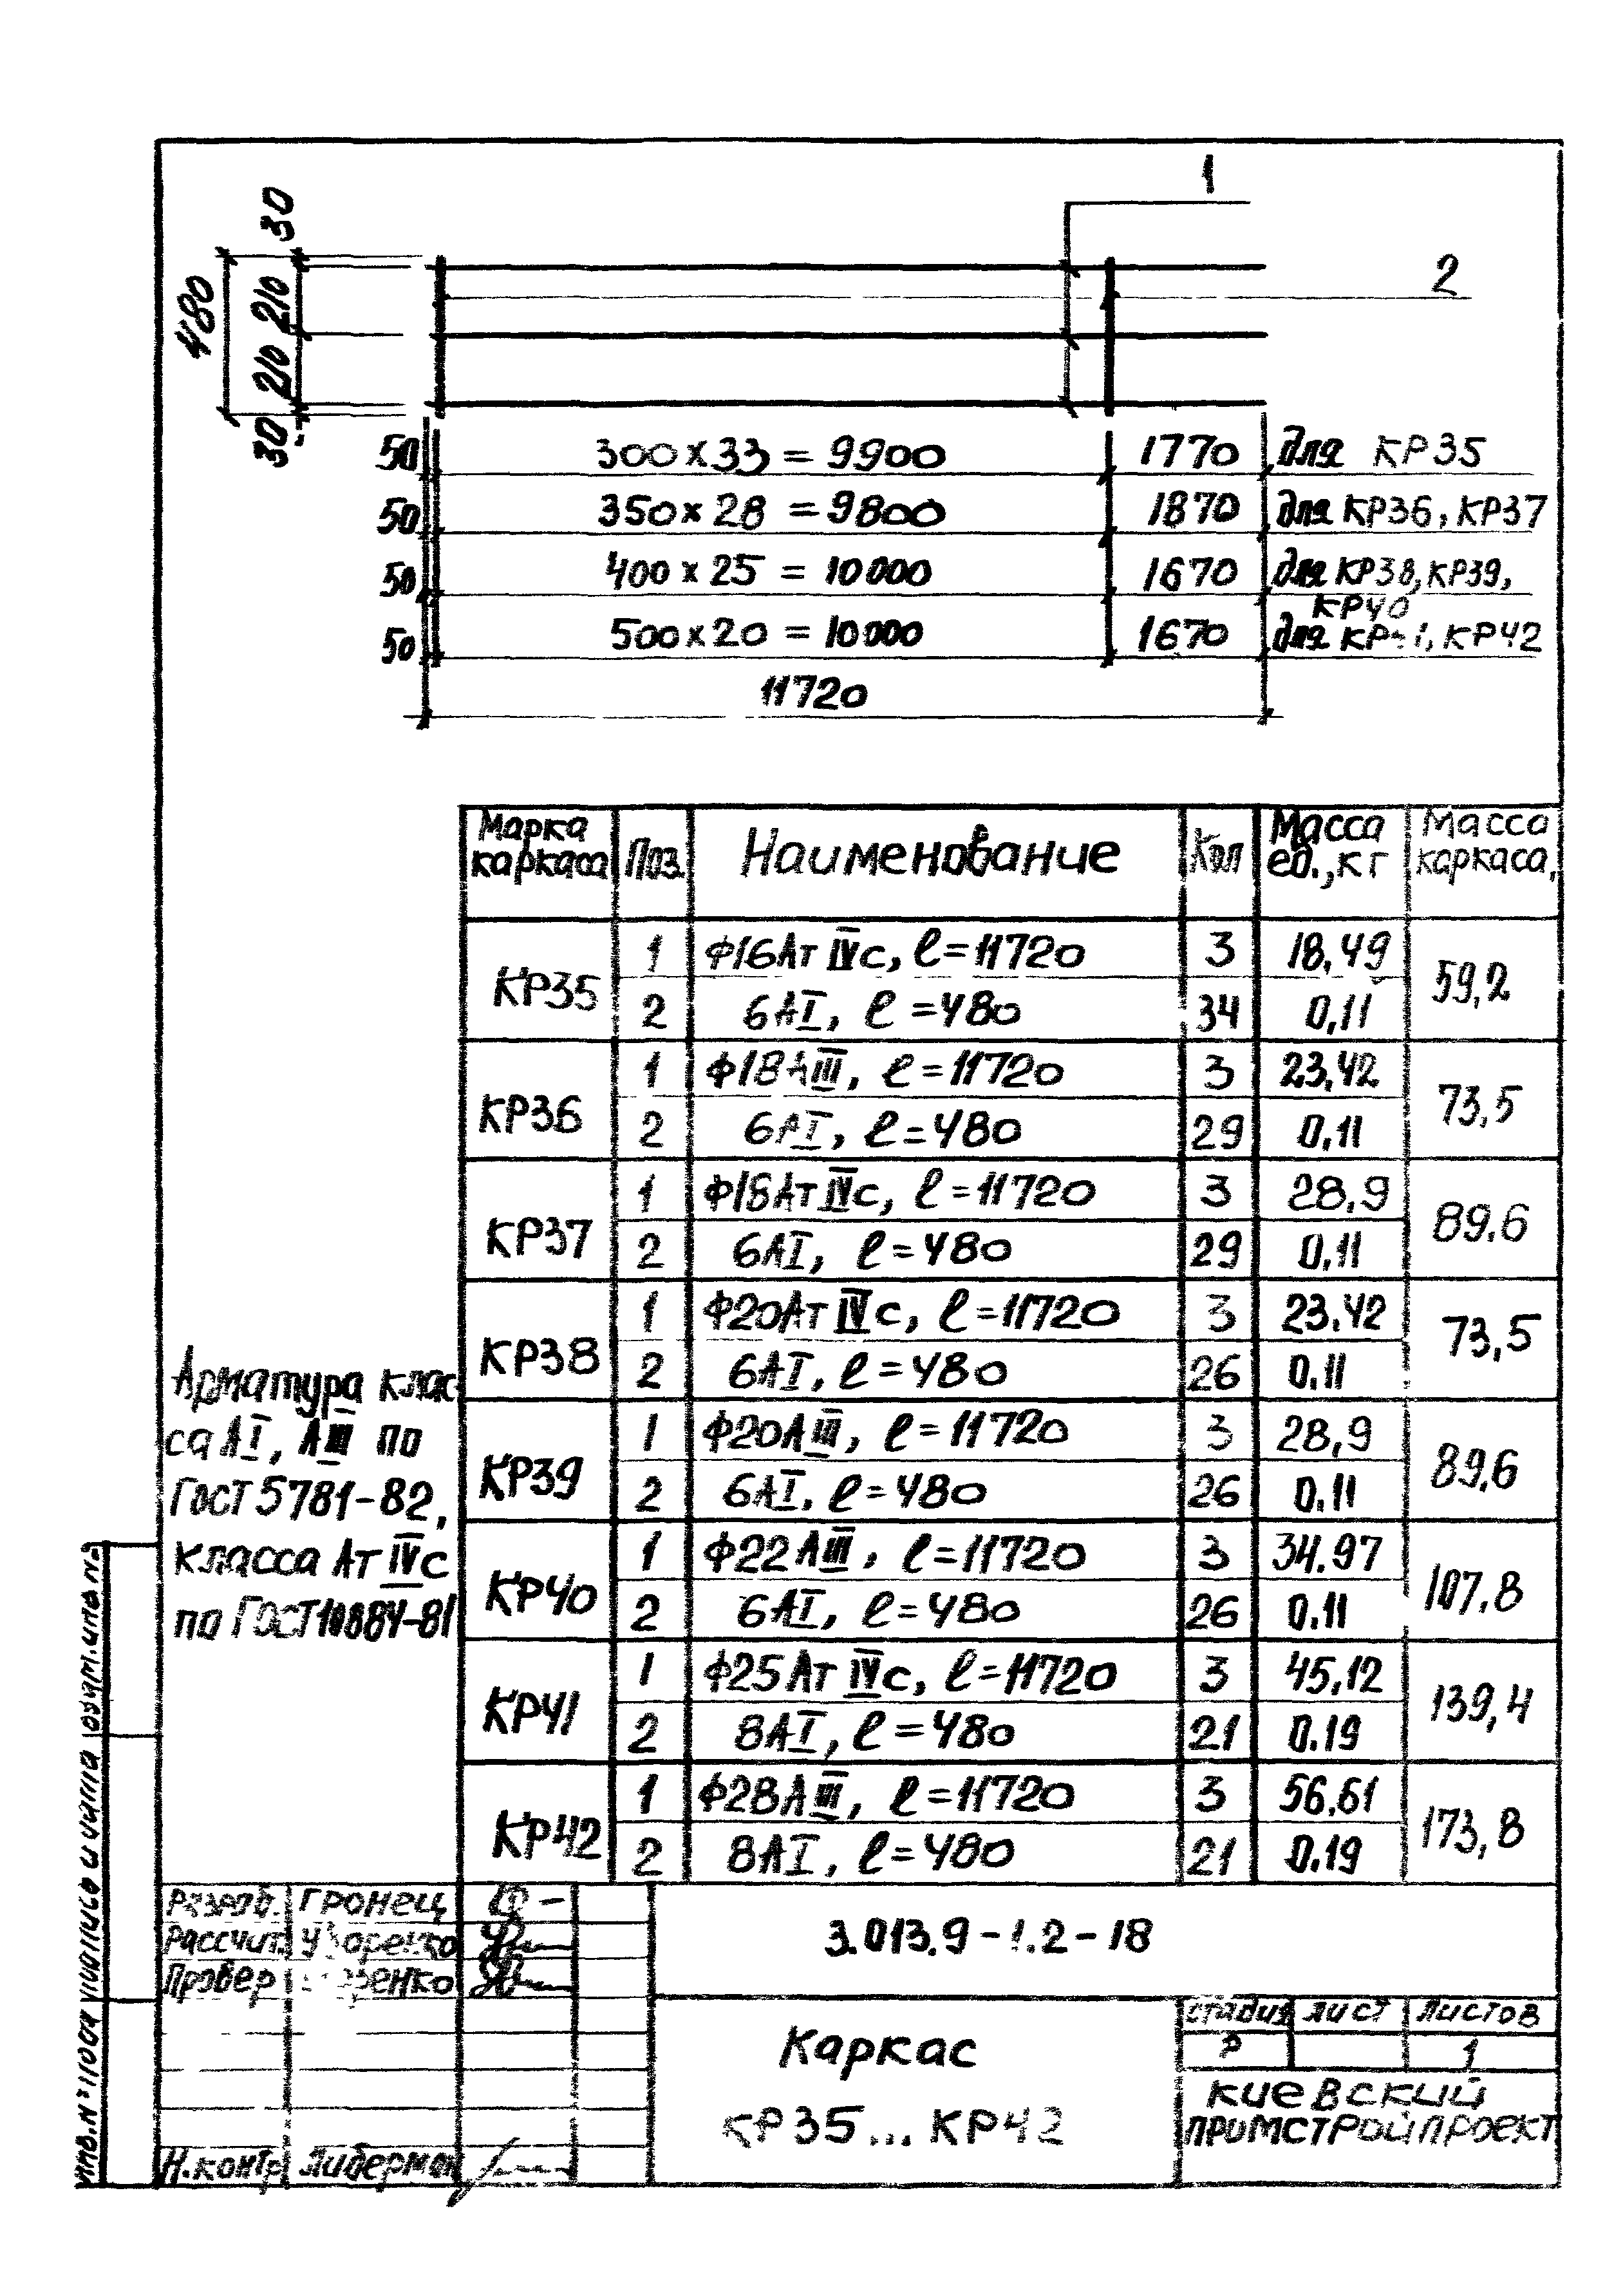 1
2
30
210
210
30
480
50 300 x 33 = 9900 1770 для КР35
50 350 x 28 = 9800 1870 для КР36, КР37
50 400 x 25 = 10000 1670 для КР38, КР39,
КР40
50 500 x 20 = 10000 1670 для КР41, КР42
11720
Марка каркаса Поз. Наименование Кол Масса ед., кг Масса каркаса,
КР35 1 Ф16АтIVс, ℓ=11720 3 18,49 59,2
2 6АI, ℓ=480 34 0,11
КР36 1 Ф18АIII, ℓ=11720 3 23,42 73,5
2 6АI, ℓ=480 29 0,11
КР37 1 Ф18АтIVс, ℓ=11720 3 28,9 89.6
2 6АI, ℓ=480 29 0,11
КР38 1 Ф20АтIVс, ℓ=11720 3 23.42 73,5
2 6АI, ℓ=480 26 0.11
КР39 1 Ф20АIII, ℓ=11720 3 28,9 89,6
2 6АI, ℓ=480 26 0.11
КР40 1 Ф22АIII, ℓ=11720 3 34.97 107,8
2 6АI, ℓ=480 26 0.11
КР41 1 Ф25АтIVс, ℓ=11720 3 45,12 139,4
2 8АI, ℓ=480 21 0.19
КР42 1 Ф28АIII, ℓ=11720 3 56.61 173,8
2 8АI, ℓ=480 21 0.19
Арматура клас-
са АI, АIII по
ГОСТ 5781-82,
класса АтIVс
по ГОСТ 10884-81
Разраб. Гронец
Рассчит.
Провер
Н.контр Либерман
3.013.9-1.2-18
Каркас
КР35... КР42
стадия лист листов
Р 1
КИЕВСКИЙ
ПРОМСТРОЙПРОЕКТ
Инв.N° подл Подпись и дата Взам.инв N°